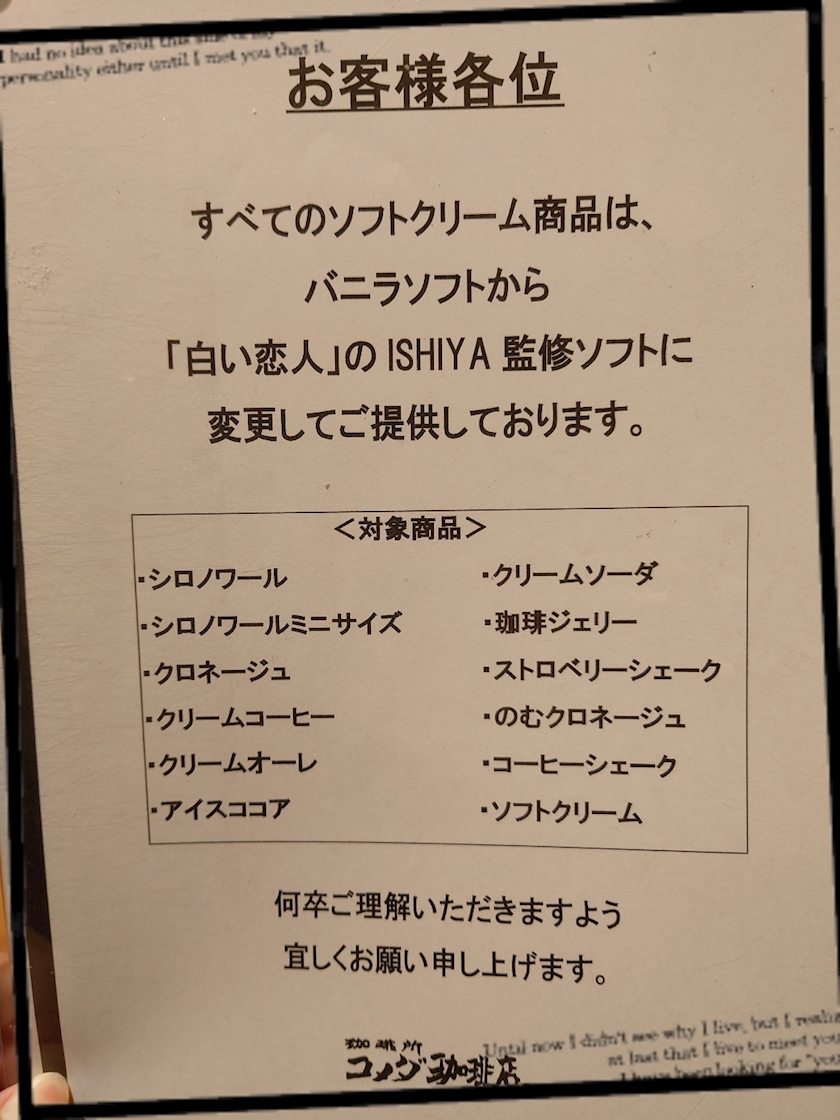 I had no idea about this side of my
personality either until I met you that it.
お客様各位
すべてのソフトクリーム商品は、
バニラソフトから
「白い恋人」の ISHIYA 監修ソフトに
変更してご提供しております。
＜対象商品＞
・シロノワール
・シロノワールミニサイズ
・クロネージュ
・クリームコーヒー
・クリームオーレ
・アイスココア
・クリームソーダ
・珈琲ジェリー
・ストロベリーシェーク
・のむクロネージュ
・コーヒーシェーク
・ソフトクリーム
何卒ご理解いただきますよう
宜しくお願い申し上げます。
珈琲所
コメダ珈琲店
Until now I didn't see why I live, but I realiz
at last that I live to meet you
I have been looking for "you